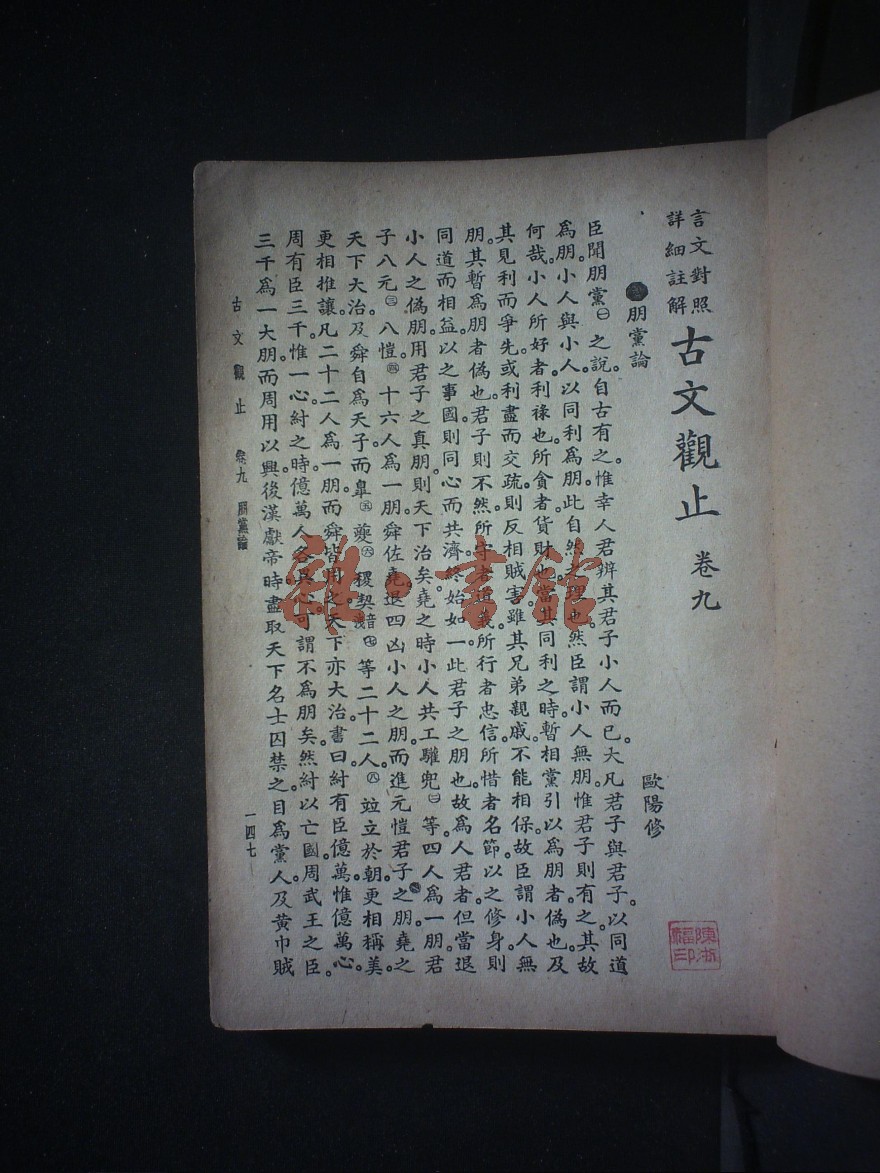 言文對照
詳細註解
古文觀止 卷九
朋黨論
歐陽修
臣聞朋黨㊀之說。自古有之。惟幸人君辨其君子小人而已。大凡君子與君子。以同道
爲朋。小人與小人。以同利爲朋。此自然之理也。然臣謂小人無朋。惟君子則有之。其故
何哉。小人所好者。利祿也。所貪者。貨財也。當其同利之時。暫相黨引以爲朋者。僞也。及
其見利而爭先。或利盡而交疏。則反相賊害。雖其兄弟親戚。不能相保。故臣謂小人無
朋。其暫爲朋者。僞也。君子則不然。所守者道義。所行者忠信。所惜者名節。以之修身。則
同道而相益。以之事國。則同心而共濟。終始如一。此君子之朋也。故爲人君者。但當退
小人之僞朋。用君子之真朋。則天下治矣。堯之時。小人共工驩兜㊁等四人爲一朋。君
子八元㊂八愷㊃十六人爲一朋。舜佐堯。退四凶小人之朋。而進元愷君子之朋。堯之
天下大治。及舜自爲天子。而臯㊄夔㊅稷契㊆等二十二人㊇竝立於朝。更相稱美。
更相推讓。凡二十二人爲一朋。而舜皆用之。天下亦大治。書曰。紂有臣億萬。惟億萬心。
周有臣三千。惟一心。紂之時。億萬人各異心。可謂不爲朋矣。然紂以亡國。周武王之臣。
三千爲一大朋。而周用以興。後漢獻帝時。盡取天下名士囚禁之。目爲黨人。及黃巾賊
古文觀止 卷九 朋黨論 一四七
雜·書館
陳淑福印